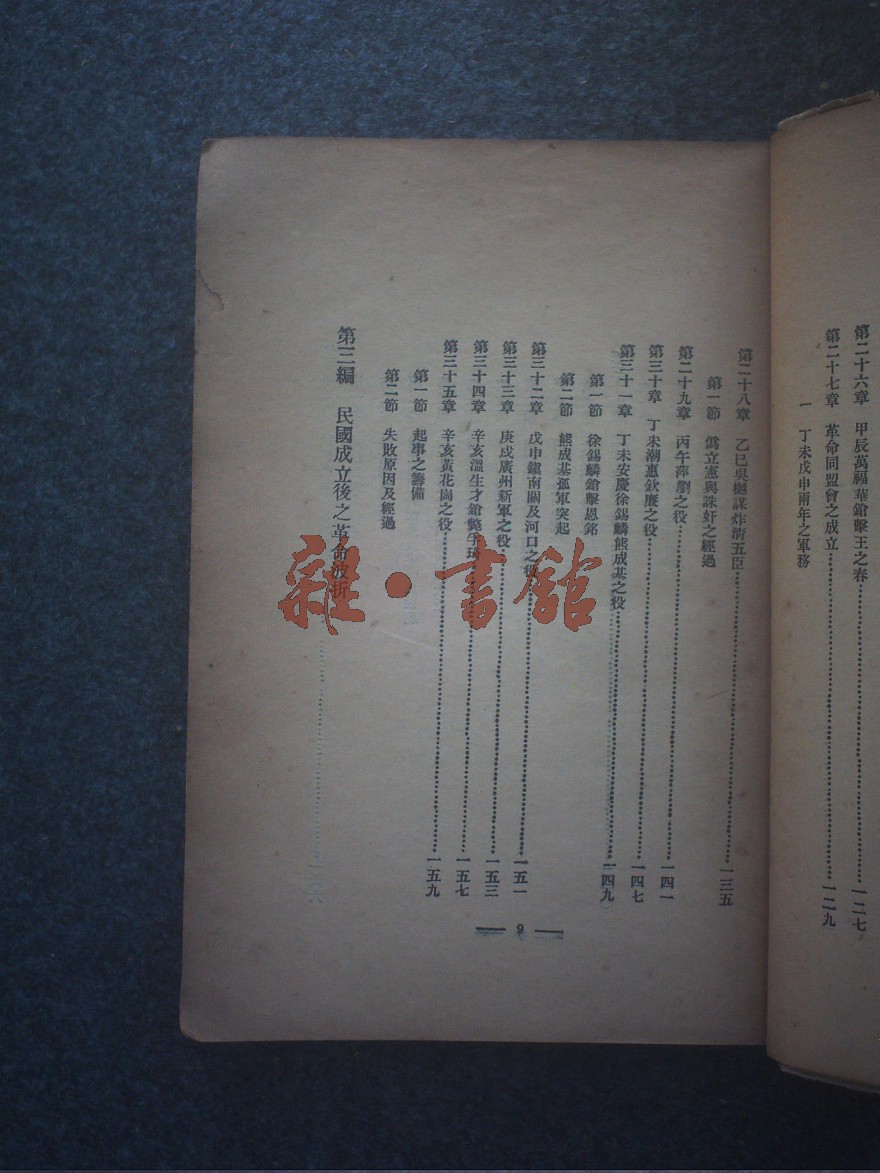 第二十六章 甲辰萬福華鎗擊王之春……一二七
第二十七章 革命同盟會之成立……一二九
一 丁未戊申兩年之軍務
第二十八章 乙巳吳樾謀炸清五臣……一三五
第一節 僞立憲與誅奸之經過
第二十九章 丙午萍瀏之役……一四一
第三十章 丁未潮惠欽廉之役……一四七
第三十一章 丁未安慶徐錫麟熊成基之役……一四九
第一節 徐錫麟鎗擊恩銘
第二節 熊成基孤軍突起
第三十二章 戊申鎭南關及河口之役……一五一
第三十三章 庚戌廣州新軍之役……一五三
第三十四章 辛亥溫生才鎗斃孚琦……一五七
第三十五章 辛亥黃花崗之役……一五九
第一節 起事之籌備
第二節 失敗原因及經過
第三編 民國成立後之革命波折
9
雜·書館